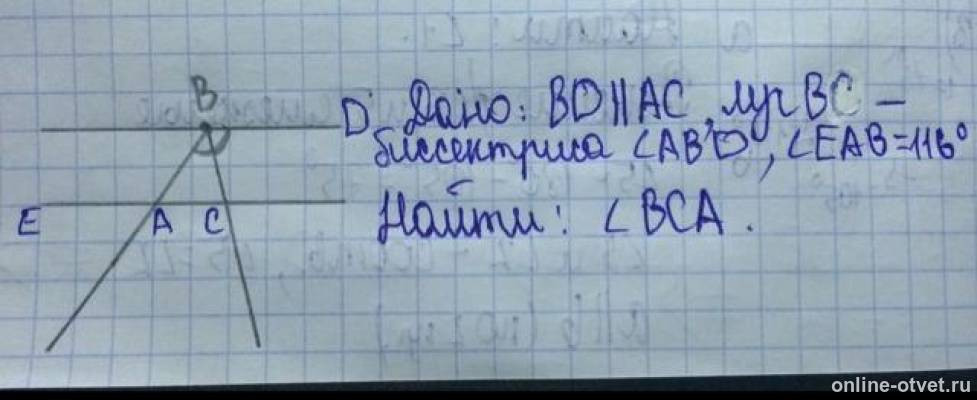 B
D
Дано: BD||AC, луч BC –
биссектриса ∠ABD, ∠EAB=116°
E A C
Найти: ∠BCA.
online-otvet.ru